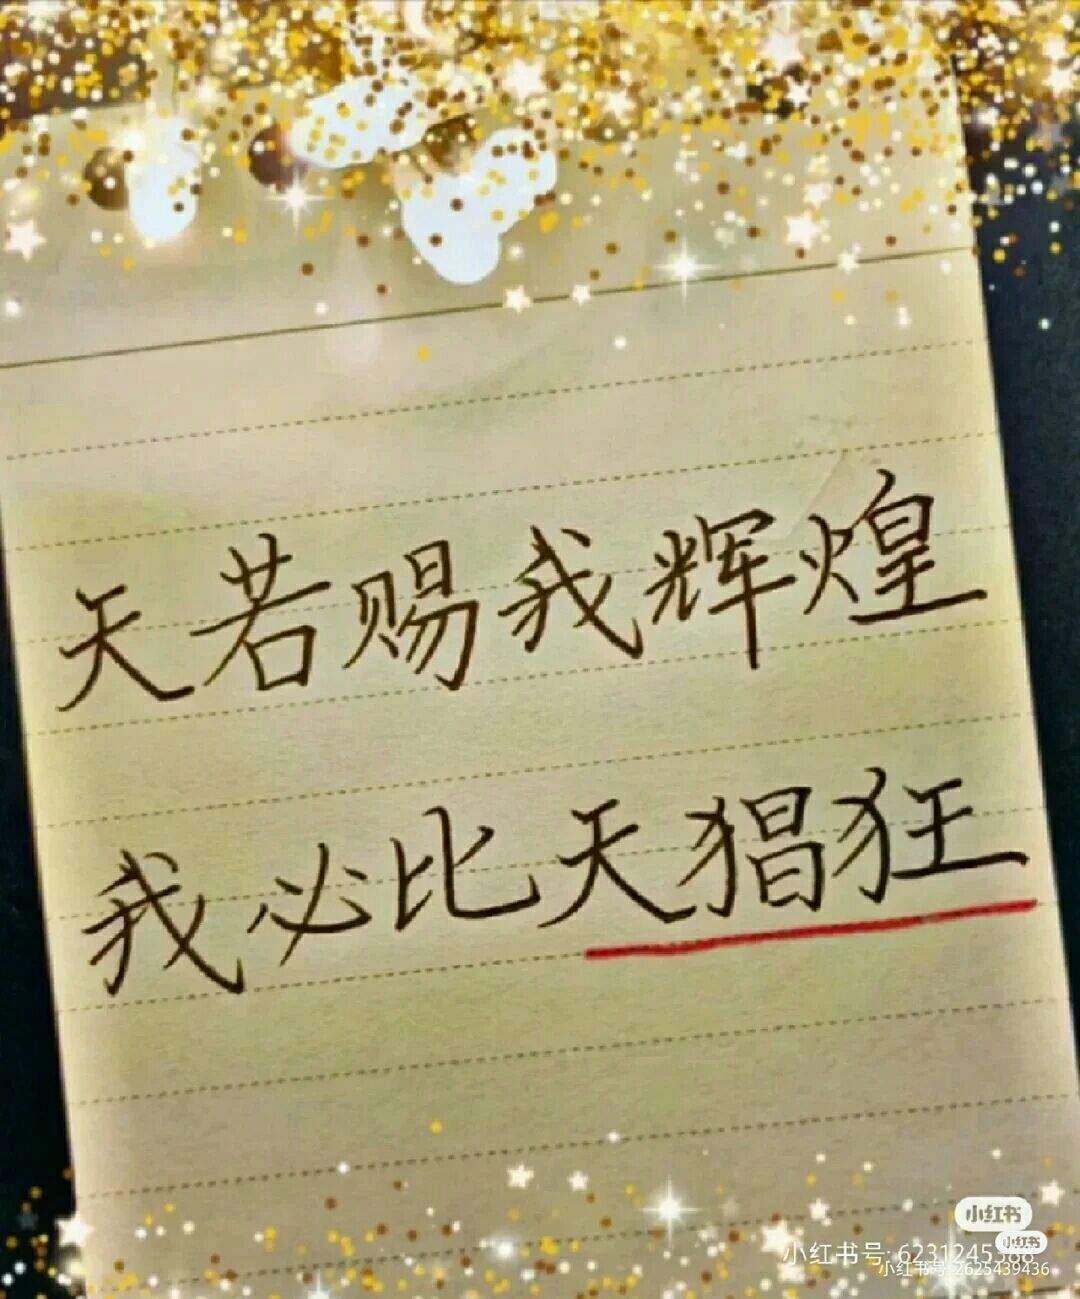 天若赐我辉煌
我必比天猖狂
小红书
小红书
小红书号: 6231245388
小红书号: 2625439436